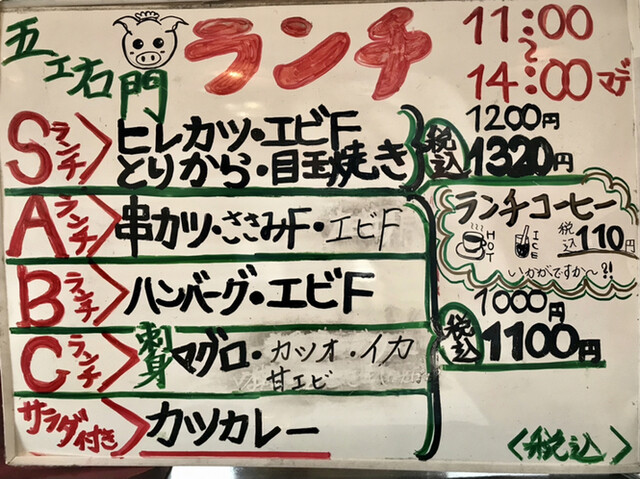 五エ右門
ランチ
11:00
〜
14:00マデ
Sランチ
ヒレカツ・エビF
とりから・目玉焼き
1200円
税込1320円
Aランチ
串カツ・ささみF・エビF
Bランチ
ハンバーグ・エビF
Cランチ
刺身マグロ・カツオ・イカ
甘エビ
サラダ付き
カツカレー
1000円
税込1100円
ランチコーヒー
HOT
ICE
税込110円
いかがですか〜?!
<税込>